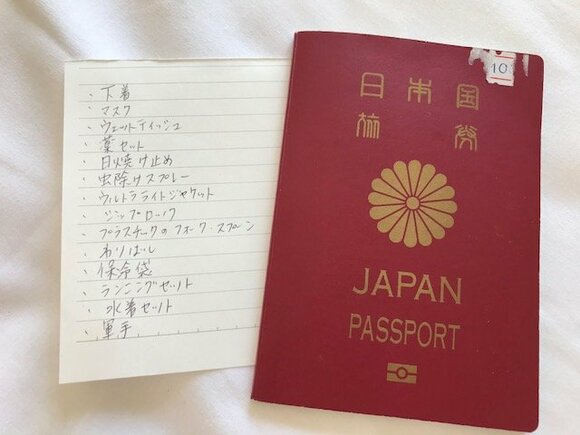 ・下着
・マスク
・ウェットティッシュ
・薬セット
・日焼け止め
・虫除けスプレー
・ウルトラライトジャケット
・ジップロック
・プラスチックのフォーク・スプーン
・わりばし
・保冷袋
・ランニングセット
・水着セット
・軍手
10
日本国
旅券
JAPAN
PASSPORT